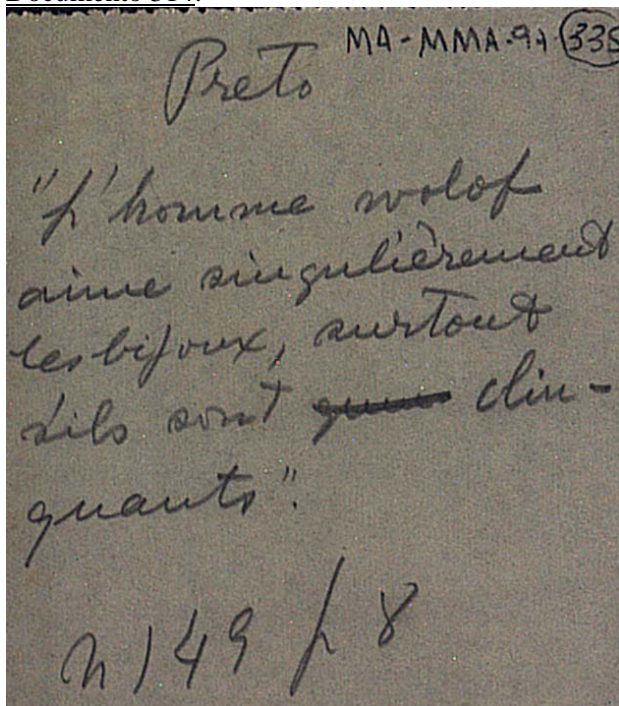 Documento 314.
MA-MMA-91-335
Preto
"L'homme wolof
aime singulièrement
les bijoux, surtout
s'ils sont clin-
quants".
n 149 p 8